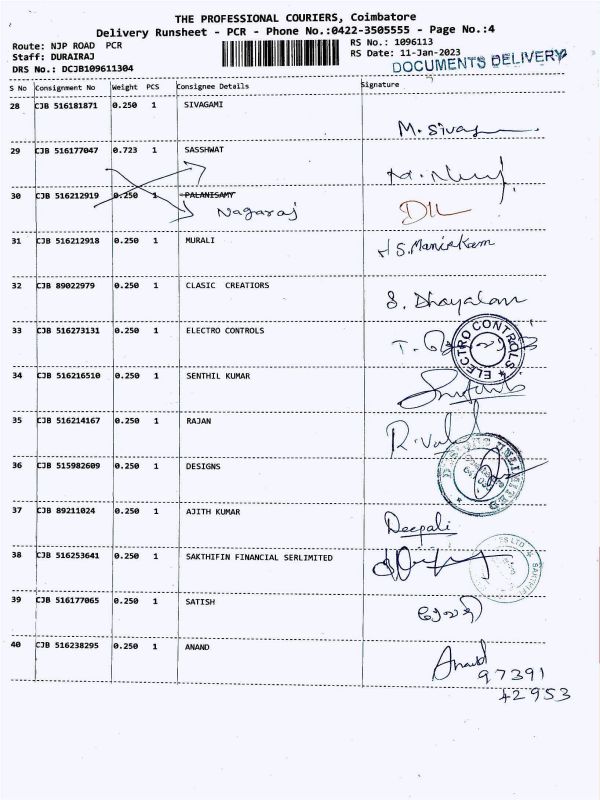 THE PROFESSIONAL COURIERS, Coimbatore
Delivery Runsheet - PCR - Phone No.:0422-3505555 - Page No.:4
Route: NJP ROAD PCR RS No.: 1096113
Staff: DURAIRAJ RS Date: 11-Jan-2023
DOCUMENTS DELIVERY
DRS No.: DCJB109611304
S No Consignment No Weight PCS Consignee Details Signature
28 CJB 516181871 0.250 1 SIVAGAMI
29 CJB 516177047 0.723 1 SASSHWAT
30 CJB 516212919 0.250 1 PALANISAMY
Nagaraj
31 CJB 516212918 0.250 1 MURALI
S.Manickam
32 CJB 89022979 0.250 1 CLASIC CREATIORS
S. Dhayalan
33 CJB 516273131 0.250 1 ELECTRO CONTROLS
ELECTRO CONTROLS
34 CJB 516216510 0.250 1 SENTHIL KUMAR
35 CJB 516214167 0.250 1 RAJAN
36 CJB 515982609 0.250 1 DESIGNS
37 CJB 89211024 0.250 1 AJITH KUMAR
Deepali
38 CJB 516253641 0.250 1 SAKTHIFIN FINANCIAL SERLIMITED
39 CJB 516177065 0.250 1 SATISH
40 CJB 516238295 0.250 1 ANAND
Anand
97391
42953